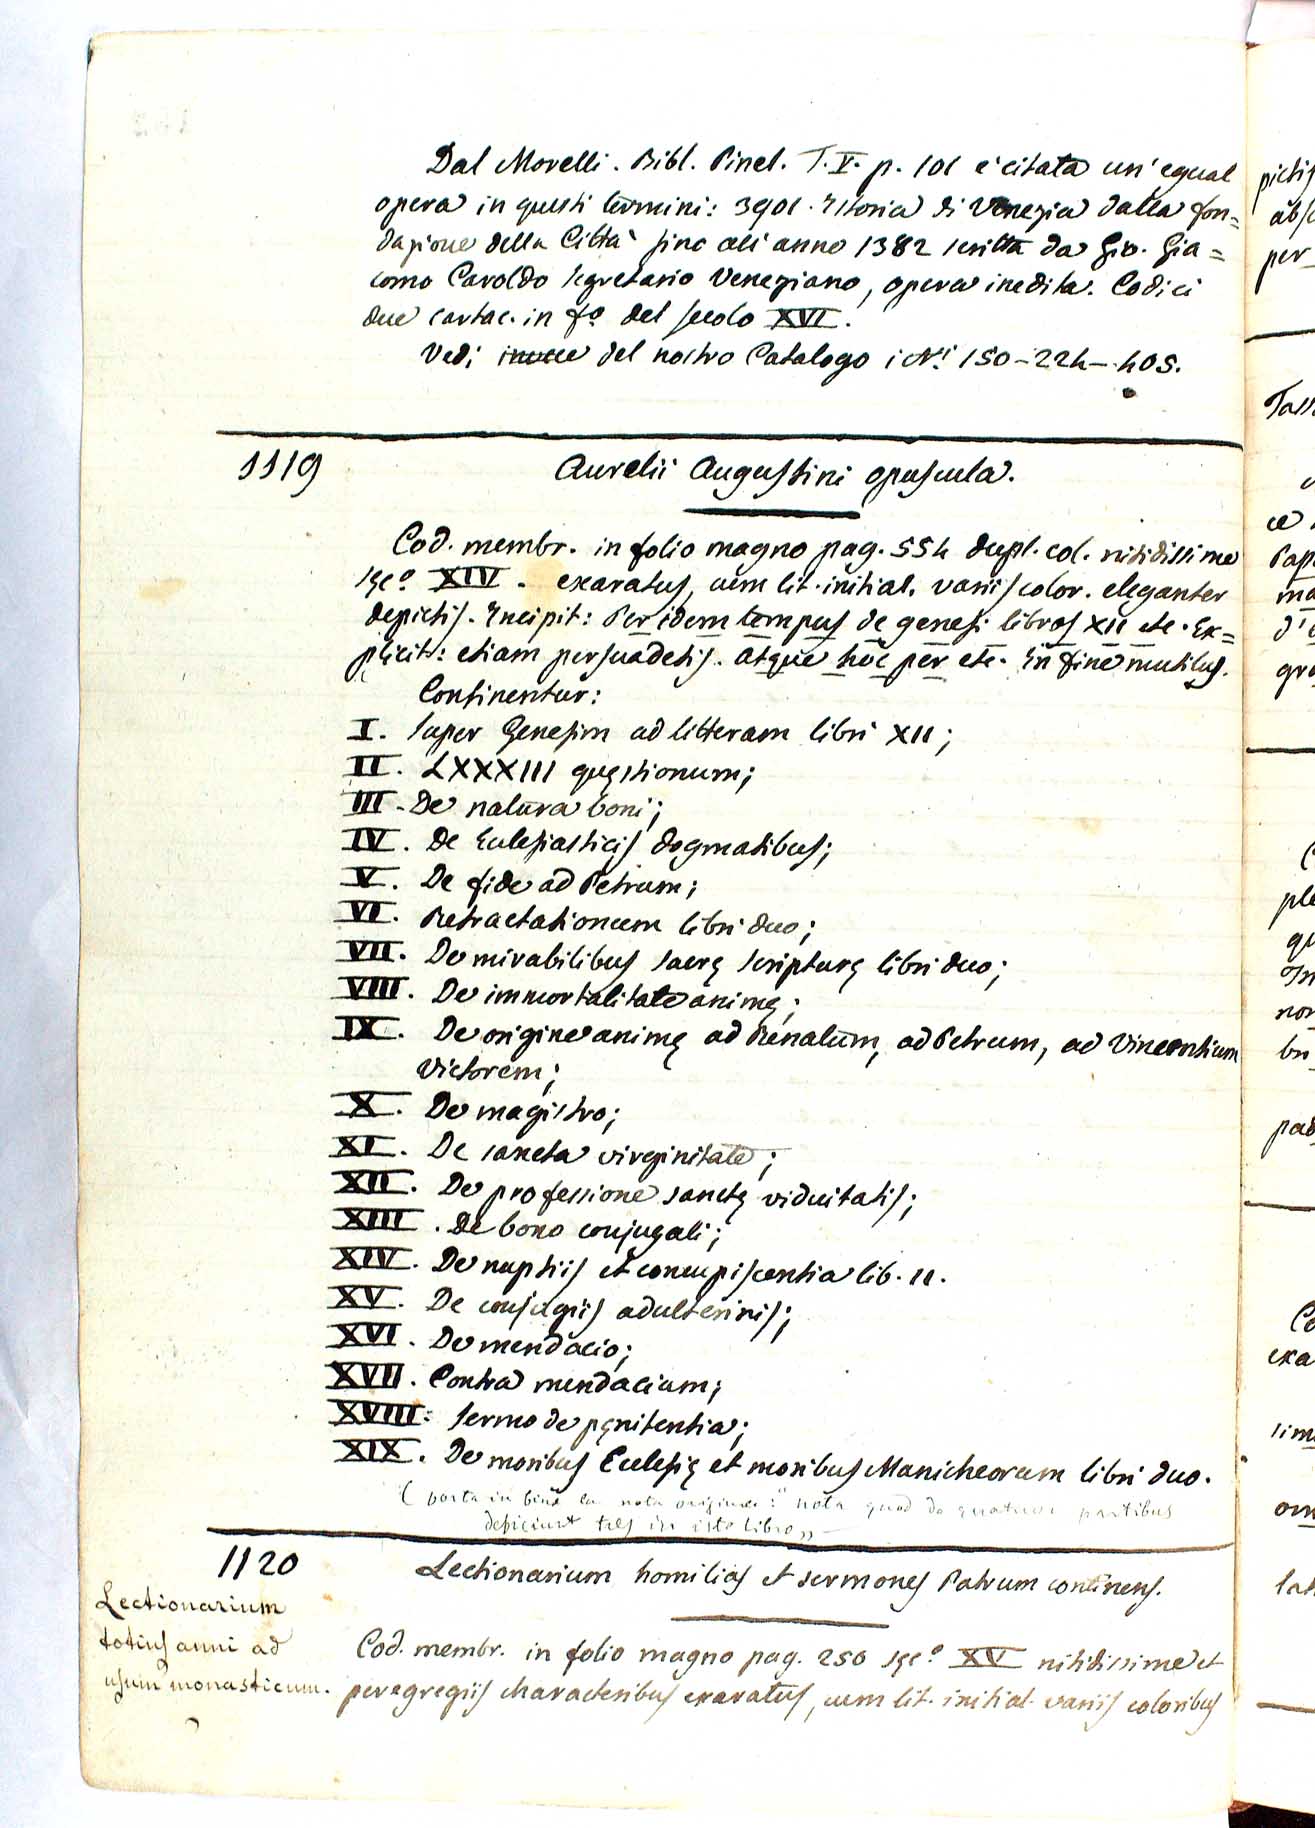 Dal Morelli. Bibl. Pinel. T. V. p. 101 e' citata un' egual
opera in questi termini: 3901. Istoria di Venezia dalla fon=
dazione della Città fino all' anno 1382 scritta da Gio. Gia=
como Caroldo segretario Veneziano, opera inedita. Codici
due cartac. in fº. del secolo XVI.
Vedi del nostro Catalogo i Nⁱ. 150-224-405.
1119
Aurelii Augustini opuscula.
Cod. membr. in folio magno pag. 554 dupl. col. nitidissime
sęcº XIV. exaratus, cum lit. initial. variis color. eleganter
depictis. Incipit: Per idem tempus de genesi libros XII etc. Ex=
plicit: etiam persuadetis. atque hoc per etc. In fine mutilus.
Continentur:
I. Super Genesim ad litteram libri XII;
II. LXXXIII quęstionum;
III. De natura boni;
IV. De Eclesiasticis dogmatibus;
V. De fide ad Petrum;
VI. Retractationum libri duo;
VII. De mirabilibus sacrę scripturę libri duo;
VIII. De immortalitate animę;
IX. De origine animę ad Renatum, ad Petrum, ad Vincentium
Victorem;
X. De magistro;
XI. De sancta virginitate;
XII. De professione sanctę viduitatis;
XIII. De bono conjugali;
XIV. De nuptiis et concupiscentia lib. II.
XV. De conjugiis adulterinis;
XVI. De mendacio;
XVII. Contra mendacium;
XVIII. Sermo de pęnitentia;
XIX. De moribus Eclesię et moribus Manicheorum libri duo.
(porta in fine la nota origina: "nota quod de quatuor partibus
deficiunt tres in isto libro„
1120
Lectionarium homilias et sermones Patrum continens.
Lectionarium
totius anni ad
usum monasticum.
Cod. membr. in folio magno pag. 250 sęcº. XV nitidissime et
peregregiis characteribus exaratus, cum lit. initial. variis coloribus